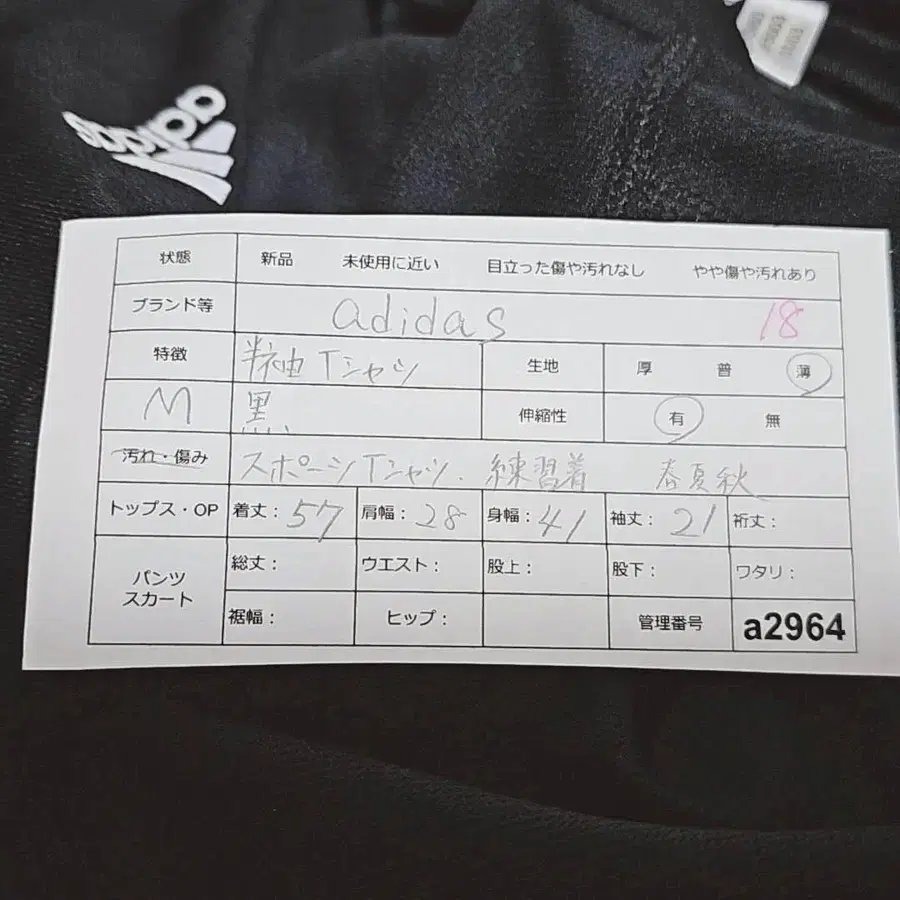 adidas
状態 新品 未使用に近い 目立った傷や汚れなし やや傷や汚れあり
ブランド等 adidas 18
特徴 半袖Tシャツ 生地 厚 普 薄
M 黒 伸縮性 有 無
汚れ・傷み スポーツTシャツ. 練習着 春夏秋
トップス・OP 着丈：57 肩幅：28 身幅：41 袖丈：21 裄丈：
パンツ スカート 総丈： ウエスト： 股上： 股下： ワタリ：
裾幅： ヒップ： 管理番号 a2964